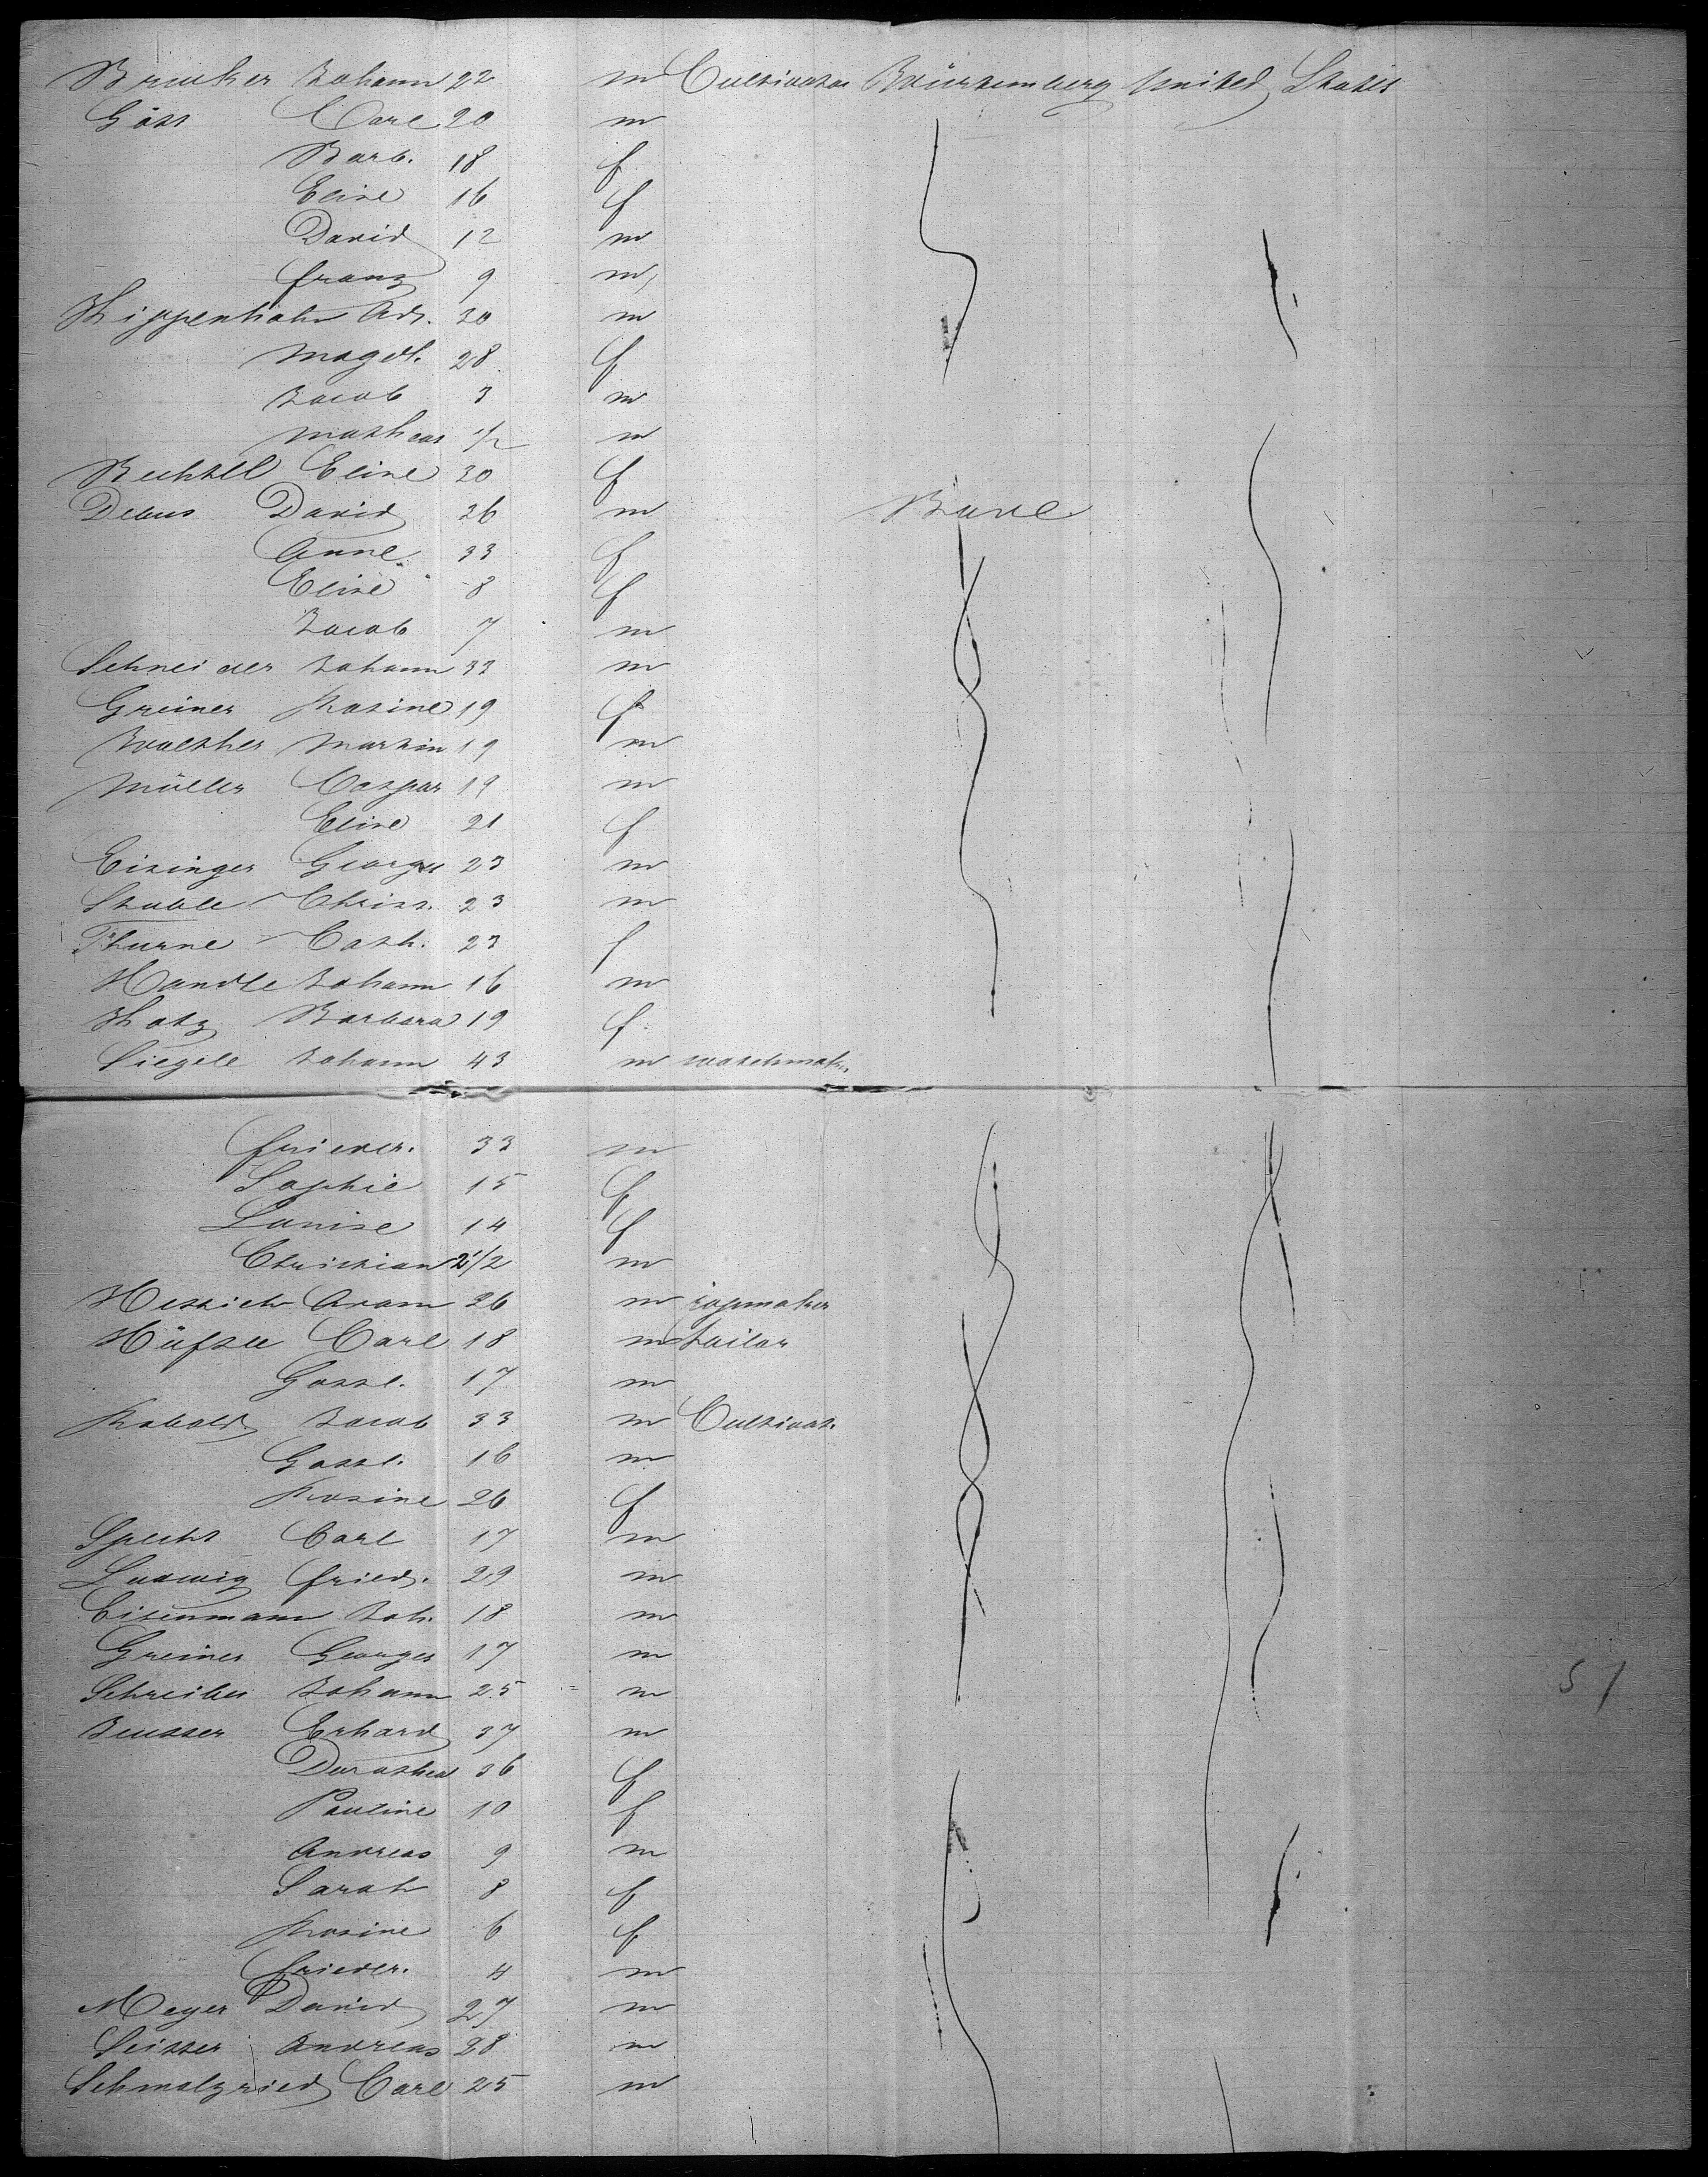 Brucker Johann 22 m Cultivator Würtemberg United States
Göst Carl 20 m
Barb. 18 f
Elise 16 f
David 12 m
Franz 9 m
Kippenhahn Ad. 30 m
Magdl. 28 f
Jacob 3 m
Matheas 1/2 m
Bechtel Elise 20 f
Debus David 36 m
Anne 33 f
Elise 8 f
Jacob 7 m
Schneider Johann 33 m
Greiner Rosine 19 f
Walther Martin 19 m
Müller Caspar 19 m
Elise 21 f
Eisinger George 23 m
Stable Christ. 23 m
Thurne Cath. 23 f
Handle Johann 16 m
Katz Barbara 19 f
Siegele Johann 43 m watchmak.
Frieder. 33 m
Sophie 15 f
Louise 14 f
Christian 2 1/2 m
Hettich Adam 26 m ropmaker
Carl 18 m tailor
Gottl. 17 m
Kobold Jacob 33 m Cultivat.
Gottl. 16 m
Rosine 26 f
Specht Carl 17 m
Ludwig Fried. 29 m
Eisenmann Joh. 18 m
Greiner Georges 17 m
Schreiber Johann 25 m
51
Erhard 37 m
Dorothea 36 f
Pauline 10 f
Andreas 9 m
Sarah 8 f
Rosine 6 f
Frieder. 4 m
Meyer David 27 m
Andreas 28 m
Schmalzried Carl 25 m